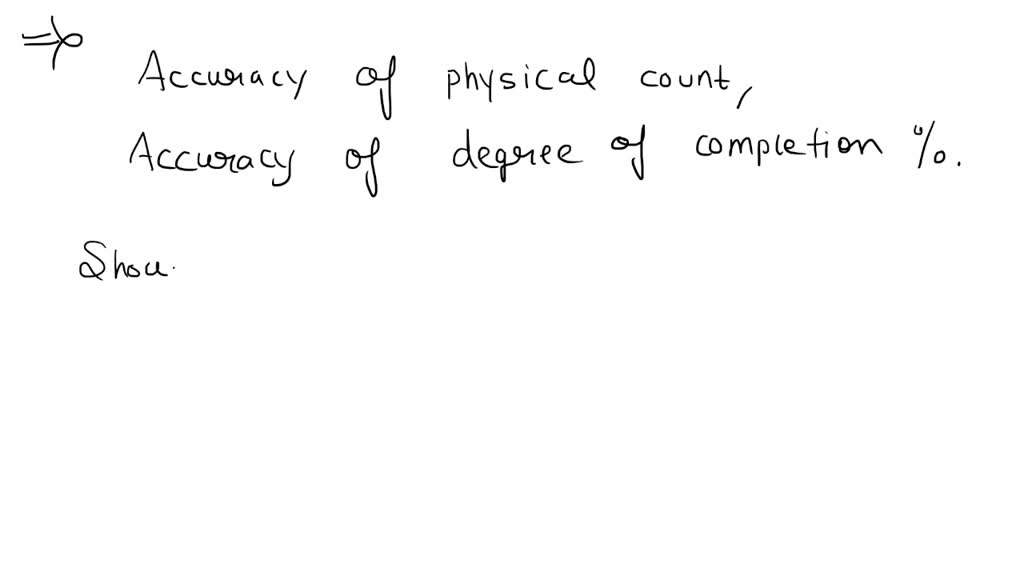 Accuracy of physical count,
Accuracy of degree of completion %.
Shou